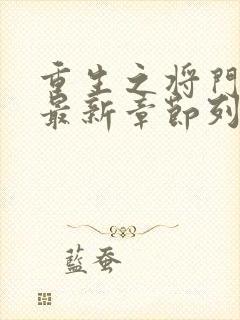 重生之将門
最新章節列
藍蚕